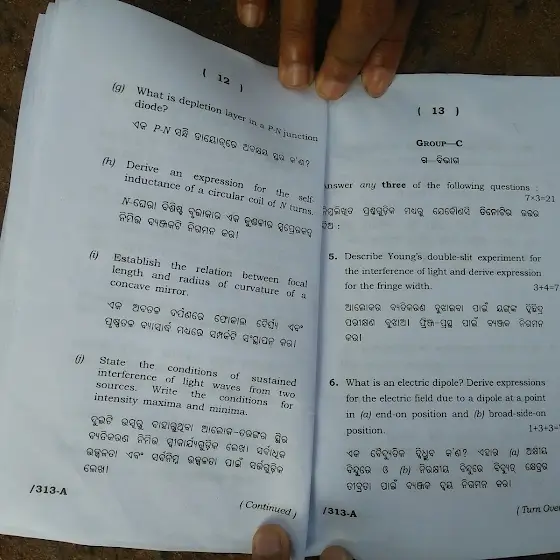 ( 12 )
(g) What is depletion layer in a P-N junction
diode?
ଏକ P-N ସନ୍ଧି ଡାୟୋଡ୍‌ରେ ଅବକ୍ଷୟ ସ୍ତର କ'ଣ?
(h) Derive an expression for the self
inductance of a circular coil of N turns.
N-ଘେରା ବିଶିଷ୍ଟ ବୃତ୍ତାକାର ଏକ କୁଣ୍ଡଳୀର ସ୍ୱପ୍ରେରକତ୍ୱ
ନିମିତ୍ତ ବ୍ୟଞ୍ଜକଟି ନିଗମନ କର।
(i) Establish the relation between focal
length and radius of curvature of a
concave mirror.
ଏକ ଅବତଳ ଦର୍ପଣରେ ଫୋକାଲ ଦୈର୍ଘ୍ୟ ଏବଂ
ପୃଷ୍ଠତଳ ବ୍ୟାସାର୍ଦ୍ଧ ମଧ୍ୟରେ ସମ୍ପର୍କଟି ସଂସ୍ଥାପନ କର।
(j) State the conditions of sustained
interference of light waves from two
sources. Write the conditions for
intensity maxima and minima.
ଦୁଇଟି ଉତ୍ସରୁ ବାହାରୁଥିବା ଆଲୋକ-ତରଙ୍ଗର ସ୍ଥିର
ବ୍ୟତିକରଣ ନିମିତ୍ତ ସ୍ୱୀକାର୍ଯ୍ୟଗୁଡ଼ିକ ଲେଖ। ସର୍ବାଧିକ
ଉଜ୍ଜ୍ୱଳତା ଏବଂ ସର୍ବନିମ୍ନ ଉଜ୍ଜ୍ୱଳତା ପାଇଁ ସର୍ତ୍ତଗୁଡ଼ିକ
ଲେଖ।
/313-A
( Continued )
( 13 )
GROUP—C
ଗ—ବିଭାଗ
Answer any three of the following questions :
7×3=21
ନିମ୍ନଲିଖିତ ପ୍ରଶ୍ନଗୁଡ଼ିକ ମଧ୍ୟରୁ ଯେକୌଣସି ତିନୋଟିର ଉତ୍ତର
ଦିଅ :
5. Describe Young's double-slit experiment for
the interference of light and derive expression
for the fringe width. 3+4=7
ଆଲୋକର ବ୍ୟତିକରଣ ବୁଝାଇବା ପାଇଁ ୟଙ୍ଗଙ୍କ ଦ୍ୱିଛିଦ୍ର
ପରୀକ୍ଷଣ ବୁଝାଅ। ଫ୍ରିଞ୍ଜ-ପ୍ରସ୍ଥ ପାଇଁ ବ୍ୟଞ୍ଜକ ନିଗମନ
କର।
6. What is an electric dipole? Derive expressions
for the electric field due to a dipole at a point
in (a) end-on position and (b) broad-side-on
position. 1+3+3=
ଏକ ବୈଦ୍ୟୁତିକ ଦ୍ୱିଧ୍ରୁବ କ'ଣ? ଏହାର (a) ଅକ୍ଷୀୟ
ବିନ୍ଦୁରେ ଓ (b) ନିରକ୍ଷୀୟ ବିନ୍ଦୁରେ ବିଦ୍ୟୁତ୍ କ୍ଷେତ୍ରର
ତୀବ୍ରତା ପାଇଁ ବ୍ୟଞ୍ଜକ ଦ୍ୱୟ ନିଗମନ କର।
/313-A
( Turn Over